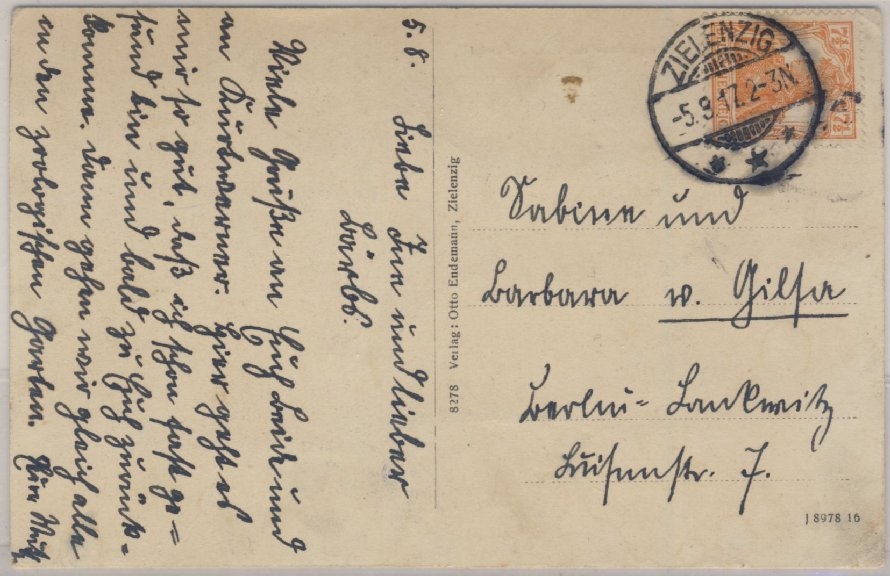 5.8. Liebe Inn und lieber
Bärbs.
Viele Grüße an Euch beide und
an Kurtwerner. Hier geht es
mir so gut, daß ich schon fast ge=
sund bin und bald zu Euch zurück=
komme. Dann gehen wir gleich alle
in den zoologischen Garten. Eure
8278 Verlag: Otto Endemann, Zielenzig
ZIELENZIG
-5.9.17. 2-3N.
7½
7½
Sabine und
Barbara v. Gilsa
Berlin-Lankwitz
Luisenstr. 7.
J 8978 16